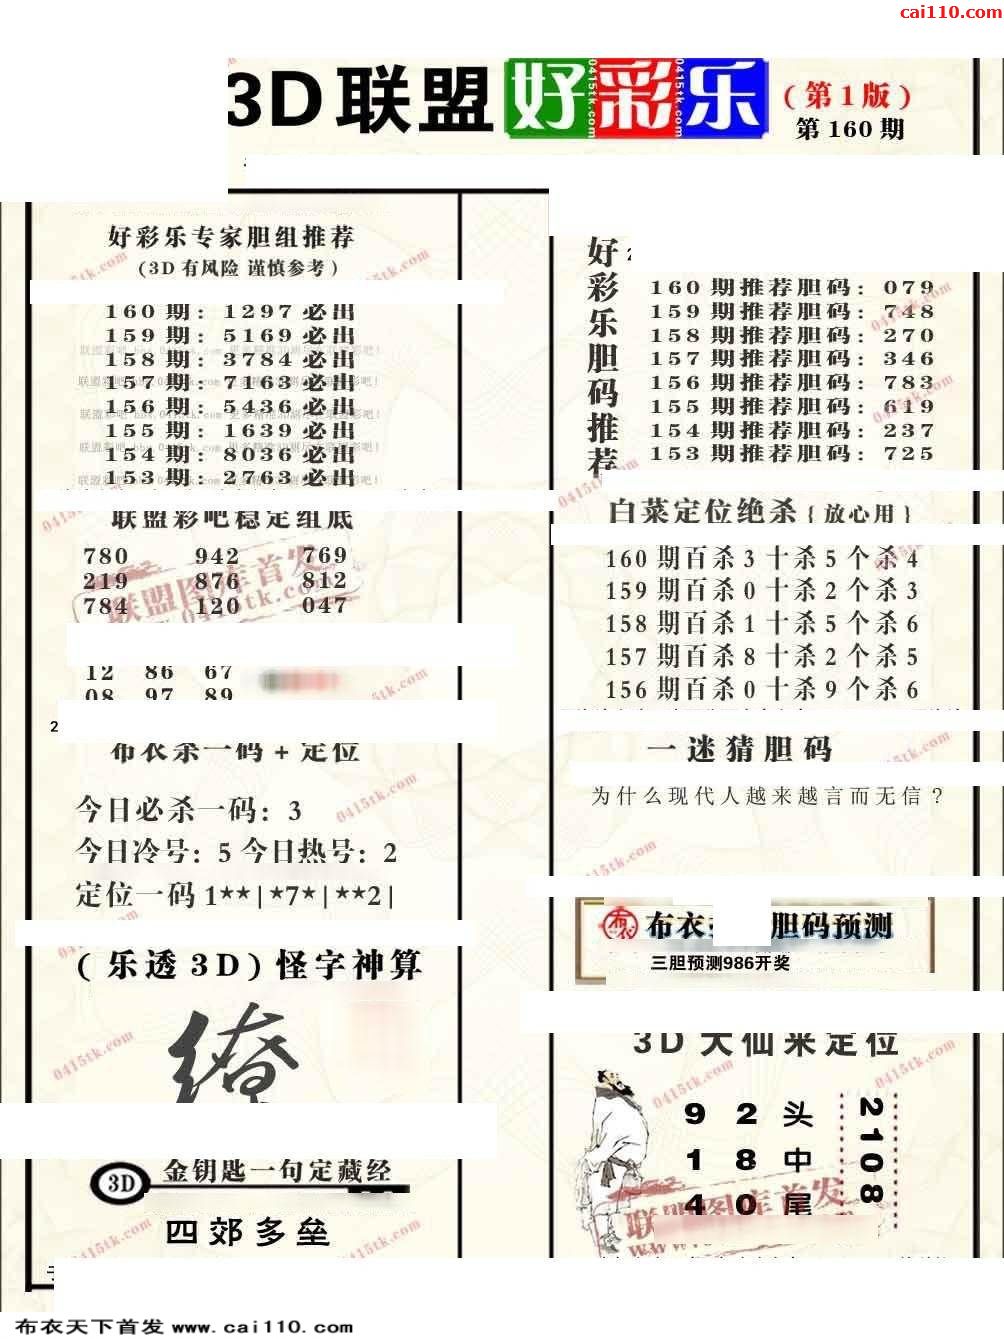 cai110.com
3D联盟好彩乐
(第1版)
第160期
好彩乐专家胆组推荐
(3D有风险 谨慎参考)
160期: 1297必出
159期: 5169必出
158期: 3784必出
157期: 7163必出
156期: 5436必出
155期: 1639必出
154期: 8036必出
153期: 2763必出
联盟彩吧稳定组底
780 942 769
219 876 812
784 120 047
12 86 67
08 97 89
2
布衣杀一码+定位
今日必杀一码: 3
今日冷号: 5 今日热号: 2
定位一码 1**|*7*|**2|
(乐透3D)怪字神算
3D 金钥匙一句定藏经
四郊多垒
好彩乐胆码推荐
160期推荐胆码: 079
159期推荐胆码: 748
158期推荐胆码: 270
157期推荐胆码: 346
156期推荐胆码: 783
155期推荐胆码: 619
154期推荐胆码: 237
153期推荐胆码: 725
白菜定位绝杀{放心用}
160期百杀3十杀5个杀4
159期百杀0十杀2个杀3
158期百杀1十杀5个杀6
157期百杀8十杀2个杀5
156期百杀0十杀9个杀6
一迷猜胆码
为什么现代人越来越言而无信?
布衣 胆码预测
三胆预测986开奖
3D大仙来定位
9 2 头
1 8 中
4 0 尾
2108
联盟图库首发
0415tk.com
布衣天下首发 www.cai110.com